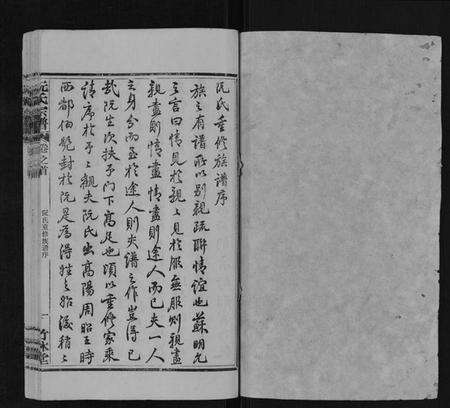 阮氏重修族譜序
族之有譜所以別親疏聯情誼也蘇明允
之言曰情見於親親見於服無服則親盡
親盡則情盡情盡則途人而已夫一人
之身分而至於途人則夫譜之作豈得已
哉阮生次扶予門下高足也頃以重修家乘
請序於予予觀夫阮氏出高陽周昭王時
西都伯就封於阮是為得姓之始後稍稍
阮氏宗譜
卷之首
阮氏重修族譜序
一
竹林堂